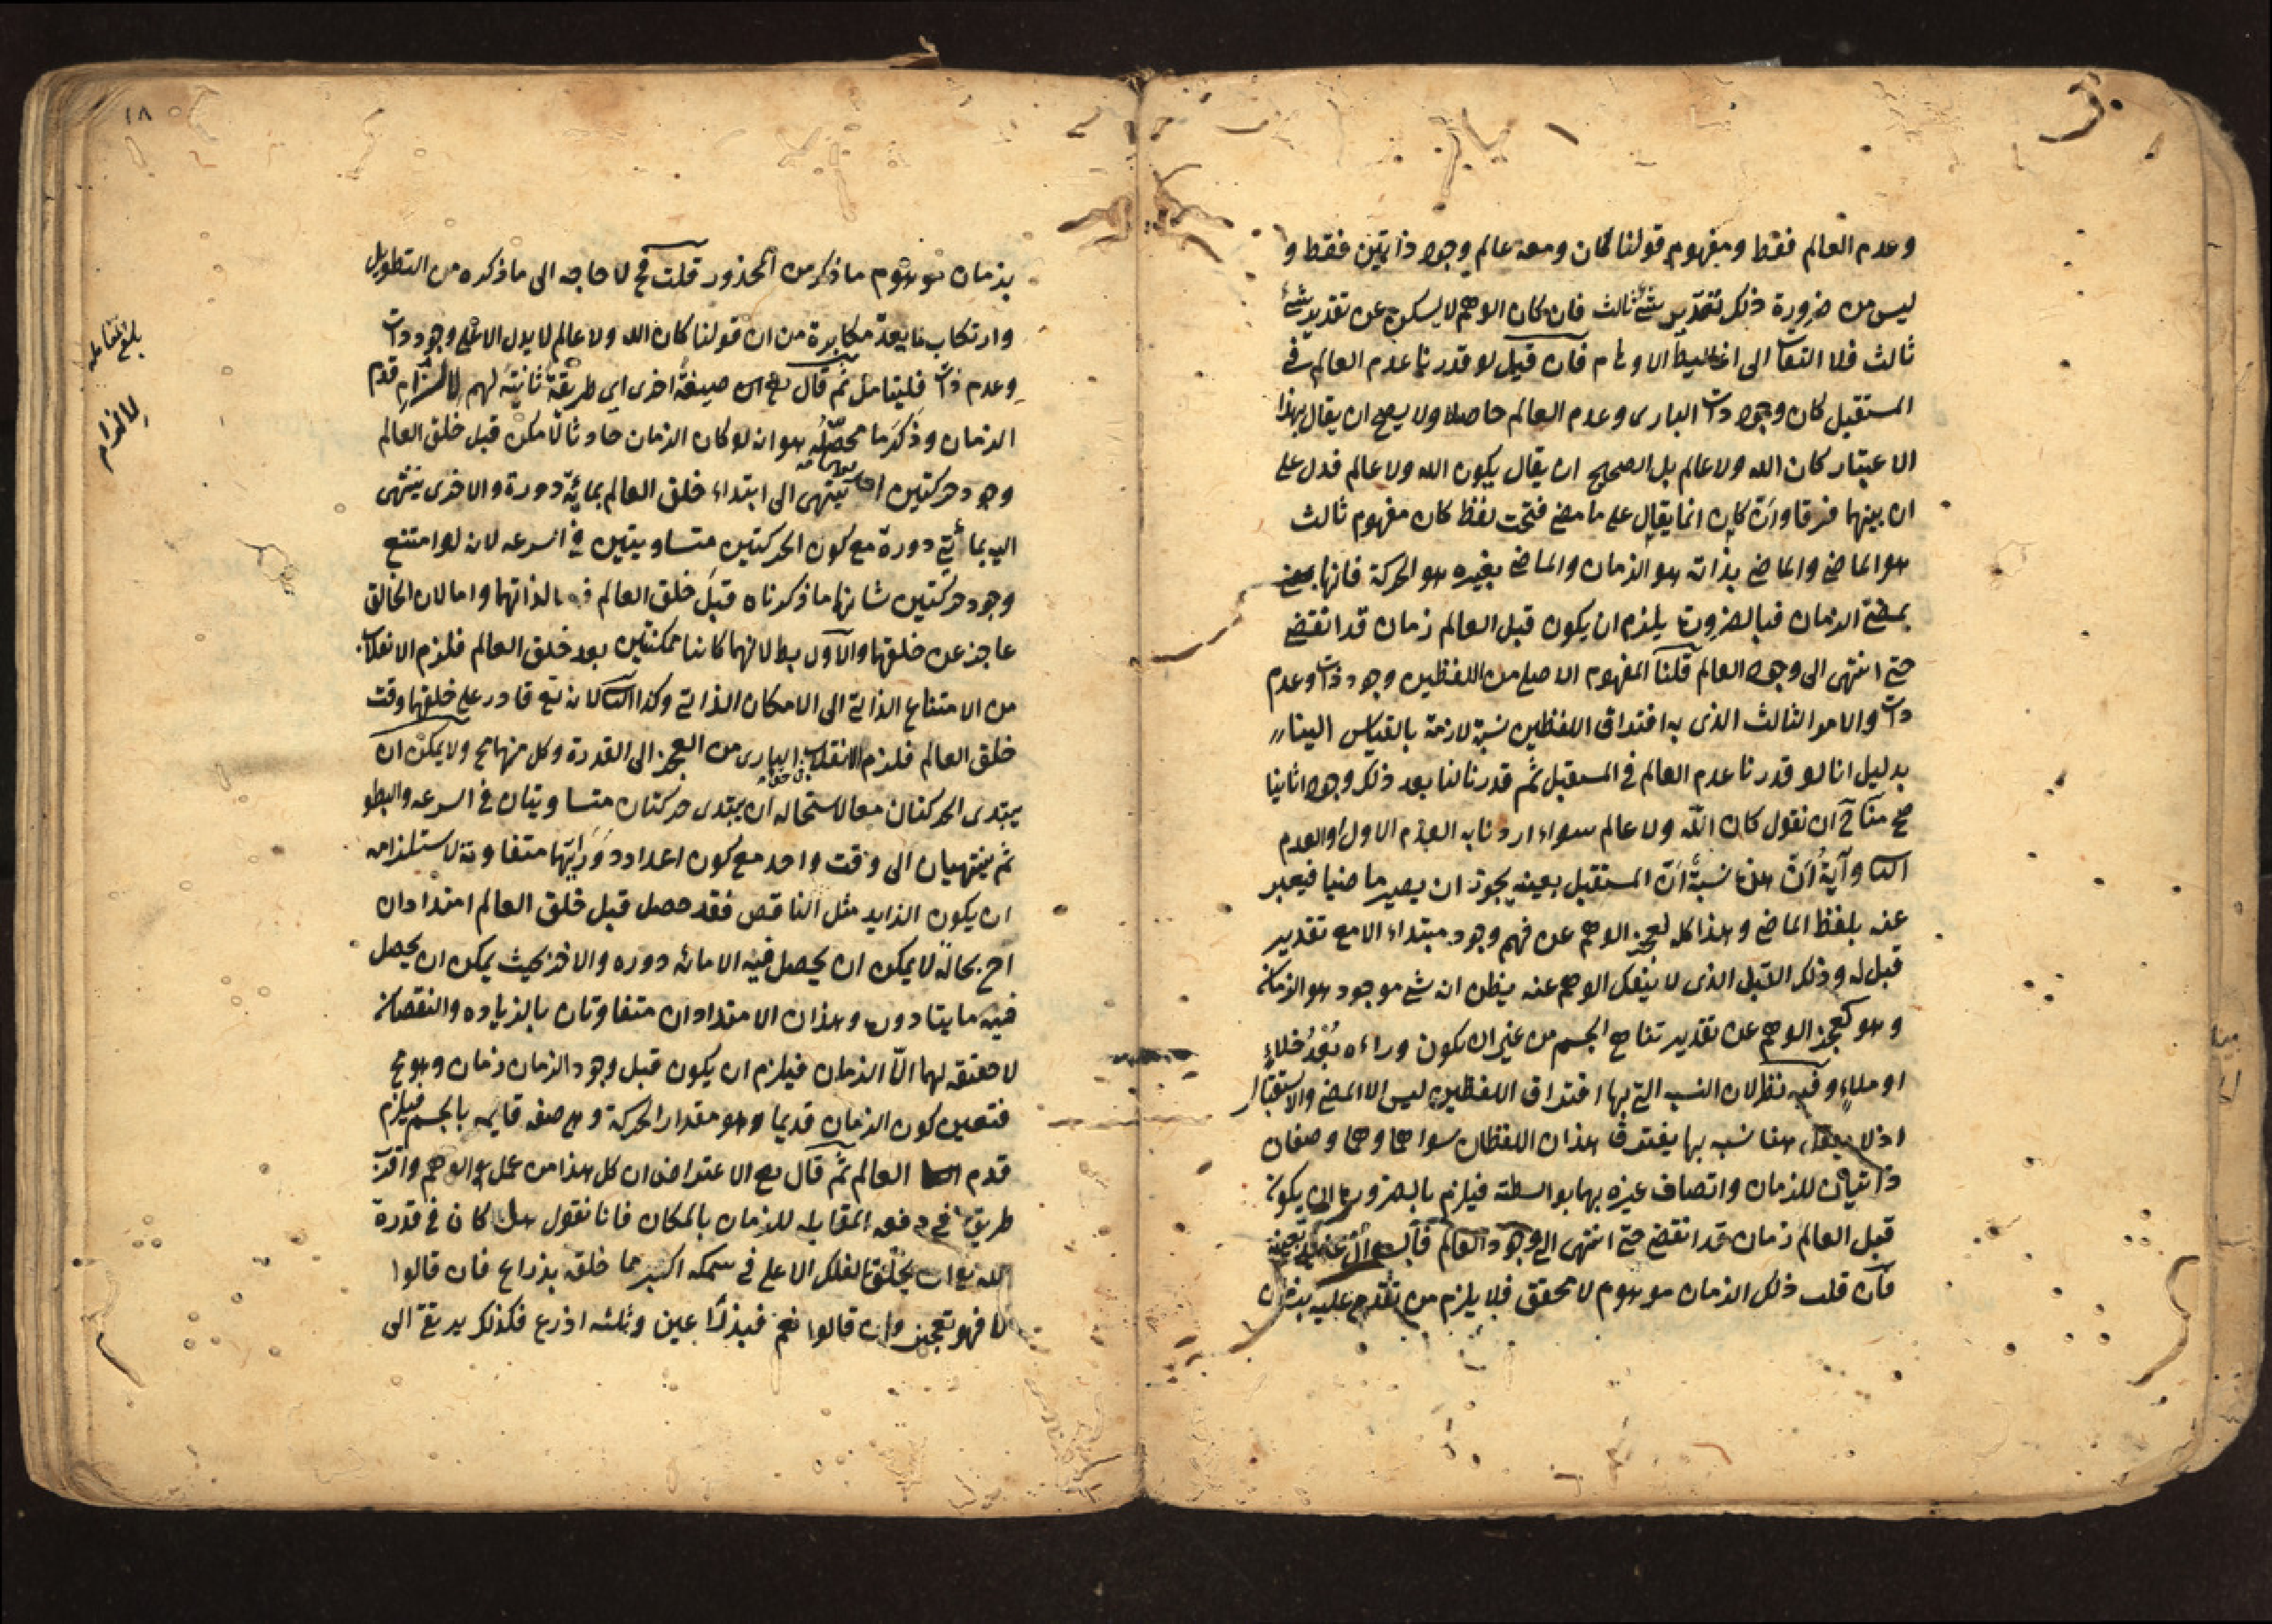 وعدم العالم فقط ومفهوم قولنا كان ومعه عالم وجود ذاتين فقط و
ليس من ضرورة ذلك تقدير شئ ثالث فان كان الوهم لا يسكن عن تقدير شئ
ثالث فلا التفات الى اغاليط الاوهام فان قيل لو قدرنا عدم العالم في
المستقبل كان وجود ذات البارى وعدم العالم حاصلا ولا يصح ان يقال بهذا
الاعتبار كان الله ولا عالم بل الصحيح ان يقال يكون الله ولا عالم فدل على
ان بينهما فرقا وان كان انما يقال على ما مضى فتحت لفظ كان مفهوم ثالث
هو الماضى والماضى بذاته هو الزمان والماضى بغيره هو الحركة فانها تمضى
بمضى الزمان فبالضرورة يلزم ان يكون قبل العالم زمان قد انقضى
حتى انتهى الى وجود العالم قلنا المفهوم الاصلى من اللفظين وجود ذات وعدم
ذات والامر الثالث الذى به افتراق اللفظين نسبة لازمة بالقياس الينا
بدليل انا لو قدرنا عدم العالم في المستقبل ثم قدرنا لنا بعد ذلك وجودا ثانيا
صح منا ح ان نقول كان الله ولا عالم سواء اردنا به العدم الاول او العدم
الثانى وآية ان هذه نسبة ان المستقبل بعينه يجوز ان يصير ماضيا فيعبر
عنه بلفظ الماضى وهذا كله لعجز الوهم عن فهم وجود مبتداء الا مع تقدير
قبل له وذلك القبل الذى لا ينفك الوهم عنه يظن انه شئ موجود هو الزمان
وهو كعجز الوهم عن تقدير تناهى الجسم من غير ان يكون وراءه بعد خلاء
او ملاء وفيه نظر لان النسبه التى بها افتراق اللفظين ليس الا المضى والاستقبال
اذ لا يعقل هنا نسبه بها يفترق هذان اللفظان سواهما وهما وصفان
ذاتيان للزمان واتصاف غيره بهما بواسطته فيلزم بالضرورة ان يكون
قبل العالم زمان قد انقضى حتى انتهى الى وجود العالم
فان قلت ذلك الزمان موهوم لا تحقق فلا يلزم من تقدم عليه بزمان
١٨
بزمان موهوم ما ذكر من المحذور قلت فح لا حاجه الى ما ذكره من التطويل
وارتكاب ما يعد مكابرة من ان قولنا كان الله ولا عالم لا يدل الا على وجود ذات
وعدم ذات فليتامل ثم قال صيغة اخرى اى طريقة ثانية لهم لالزام قدم
الزمان وذكر ما محصله هو انه لو كان الزمان حادثا لامكن قبل خلق العالم
وجود حركتين ينتهى الى ابتداء خلق العالم بمائة دورة والاخرى ينتهى
اليه بمأتى دورة مع كون الحركتين متساويتين في السرعه لانه لو امتنع
وجود حركتين شانهما ما ذكرناه قبل خلق العالم لذاتهما واما لان الخالق
عاجز عن خلقهما والاول بط لانهما كانتا ممكنتين بعد خلق العالم فلزم الانقلاب
من الامتناع الذاتى الى الامكان الذاتى وكذا الثانى لانه تع قادر على خلقهما وقت
خلق العالم فلزم الانقلاب في حق البارى من العجز الى القدرة وكل منهما مح ولا يمكن ان
يبتدى الحركتان معا لاستحاله ان يبتدى حركتان متساويتان في السرعه والبطو
ثم ينتهيان الى وقت واحد مع كون اعداد دوراتهما متفاوته لاستلزامه
ان يكون الزايد مثل الناقص فقد حصل قبل خلق العالم امتدادان
احدهما بحالة لا يمكن ان يحصل فيه الا مائه دوره والاخر بحيث يمكن ان يحصل
فيه مايتا دوره وهذان الامتدادان متفاوتان بالزياده والنقصان
لا حقيقه لهما الا الزمان فيلزم ان يكون قبل وجود الزمان زمان وهو مح
فتعين كون الزمان قديما وهو مقدار الحركة وهى صفه قايمه بالجسم فيلزم
قدم العالم ثم قال الاعتراض ان كل هذا من عمل الوهم واقرب
طريق في دفعه المقابله للزمان بالمكان فانا نقول هل كان في قدرة
الله تع ان يخلق الفلك الاعلى في سمكه اكبر مما خلقه بذراع فان قالوا
لا فهو تعجيز وان قالوا نعم فبذراعين وثلثه اذرع فكذلك يرتقى الى
لالزام